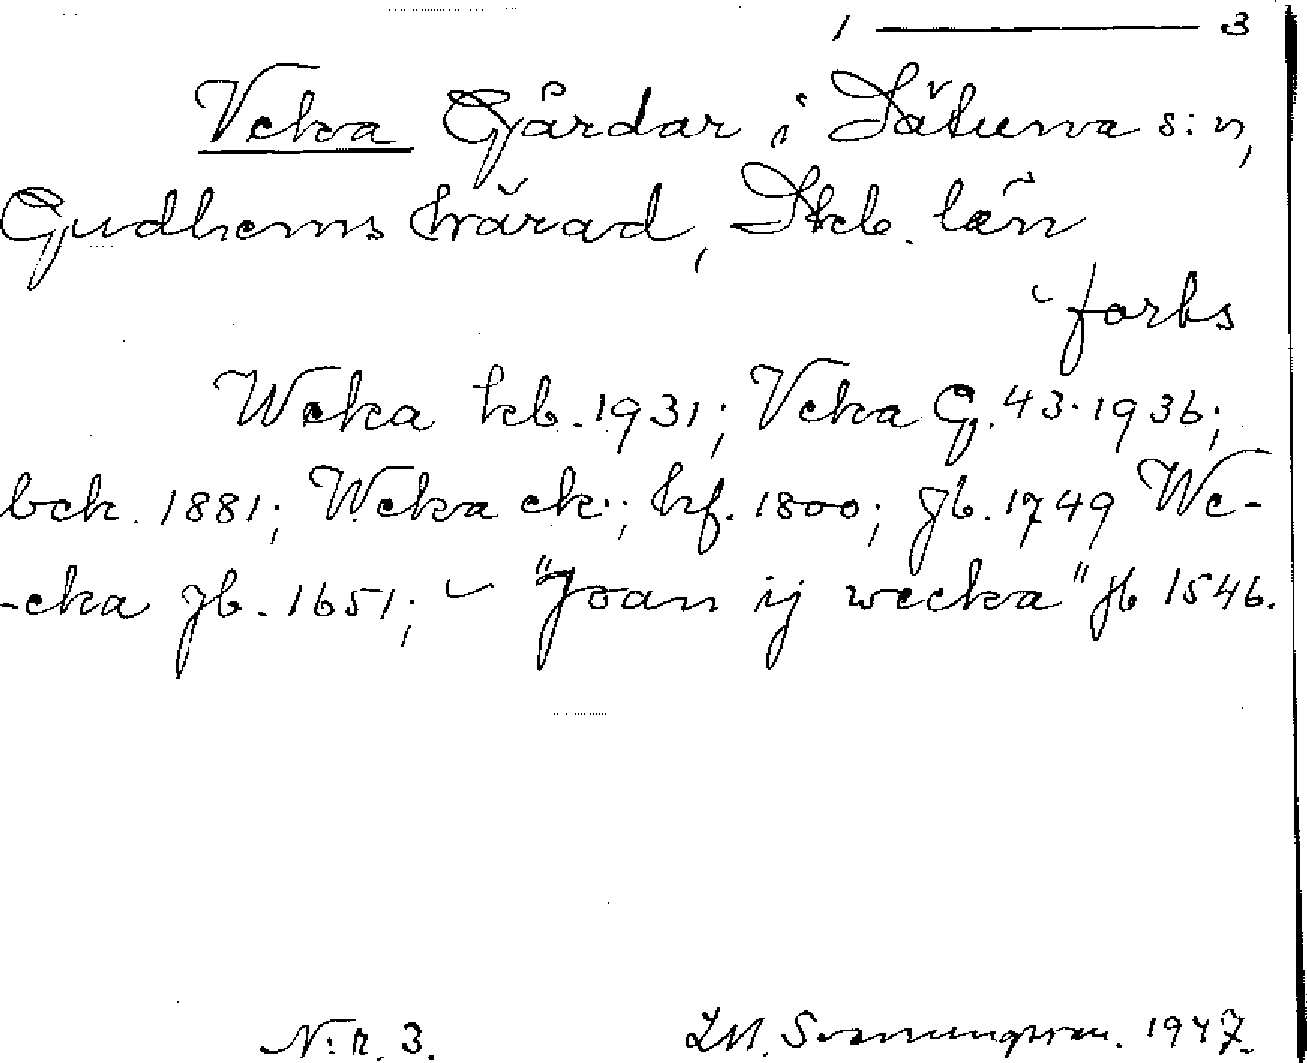 1 ——— 3
Veka Gårdar i Sätuna s:n,
Gudhems härad, Skb. län
forts
Weka kb. 1931; Veka G. 43. 1936;
bek. 1881; Weka ek.; hf. 1800; Jb. 1749 We-
-cka Jb. 1651; "Joan ij wecka" Jb 1546.
N:r. 3. 1947.